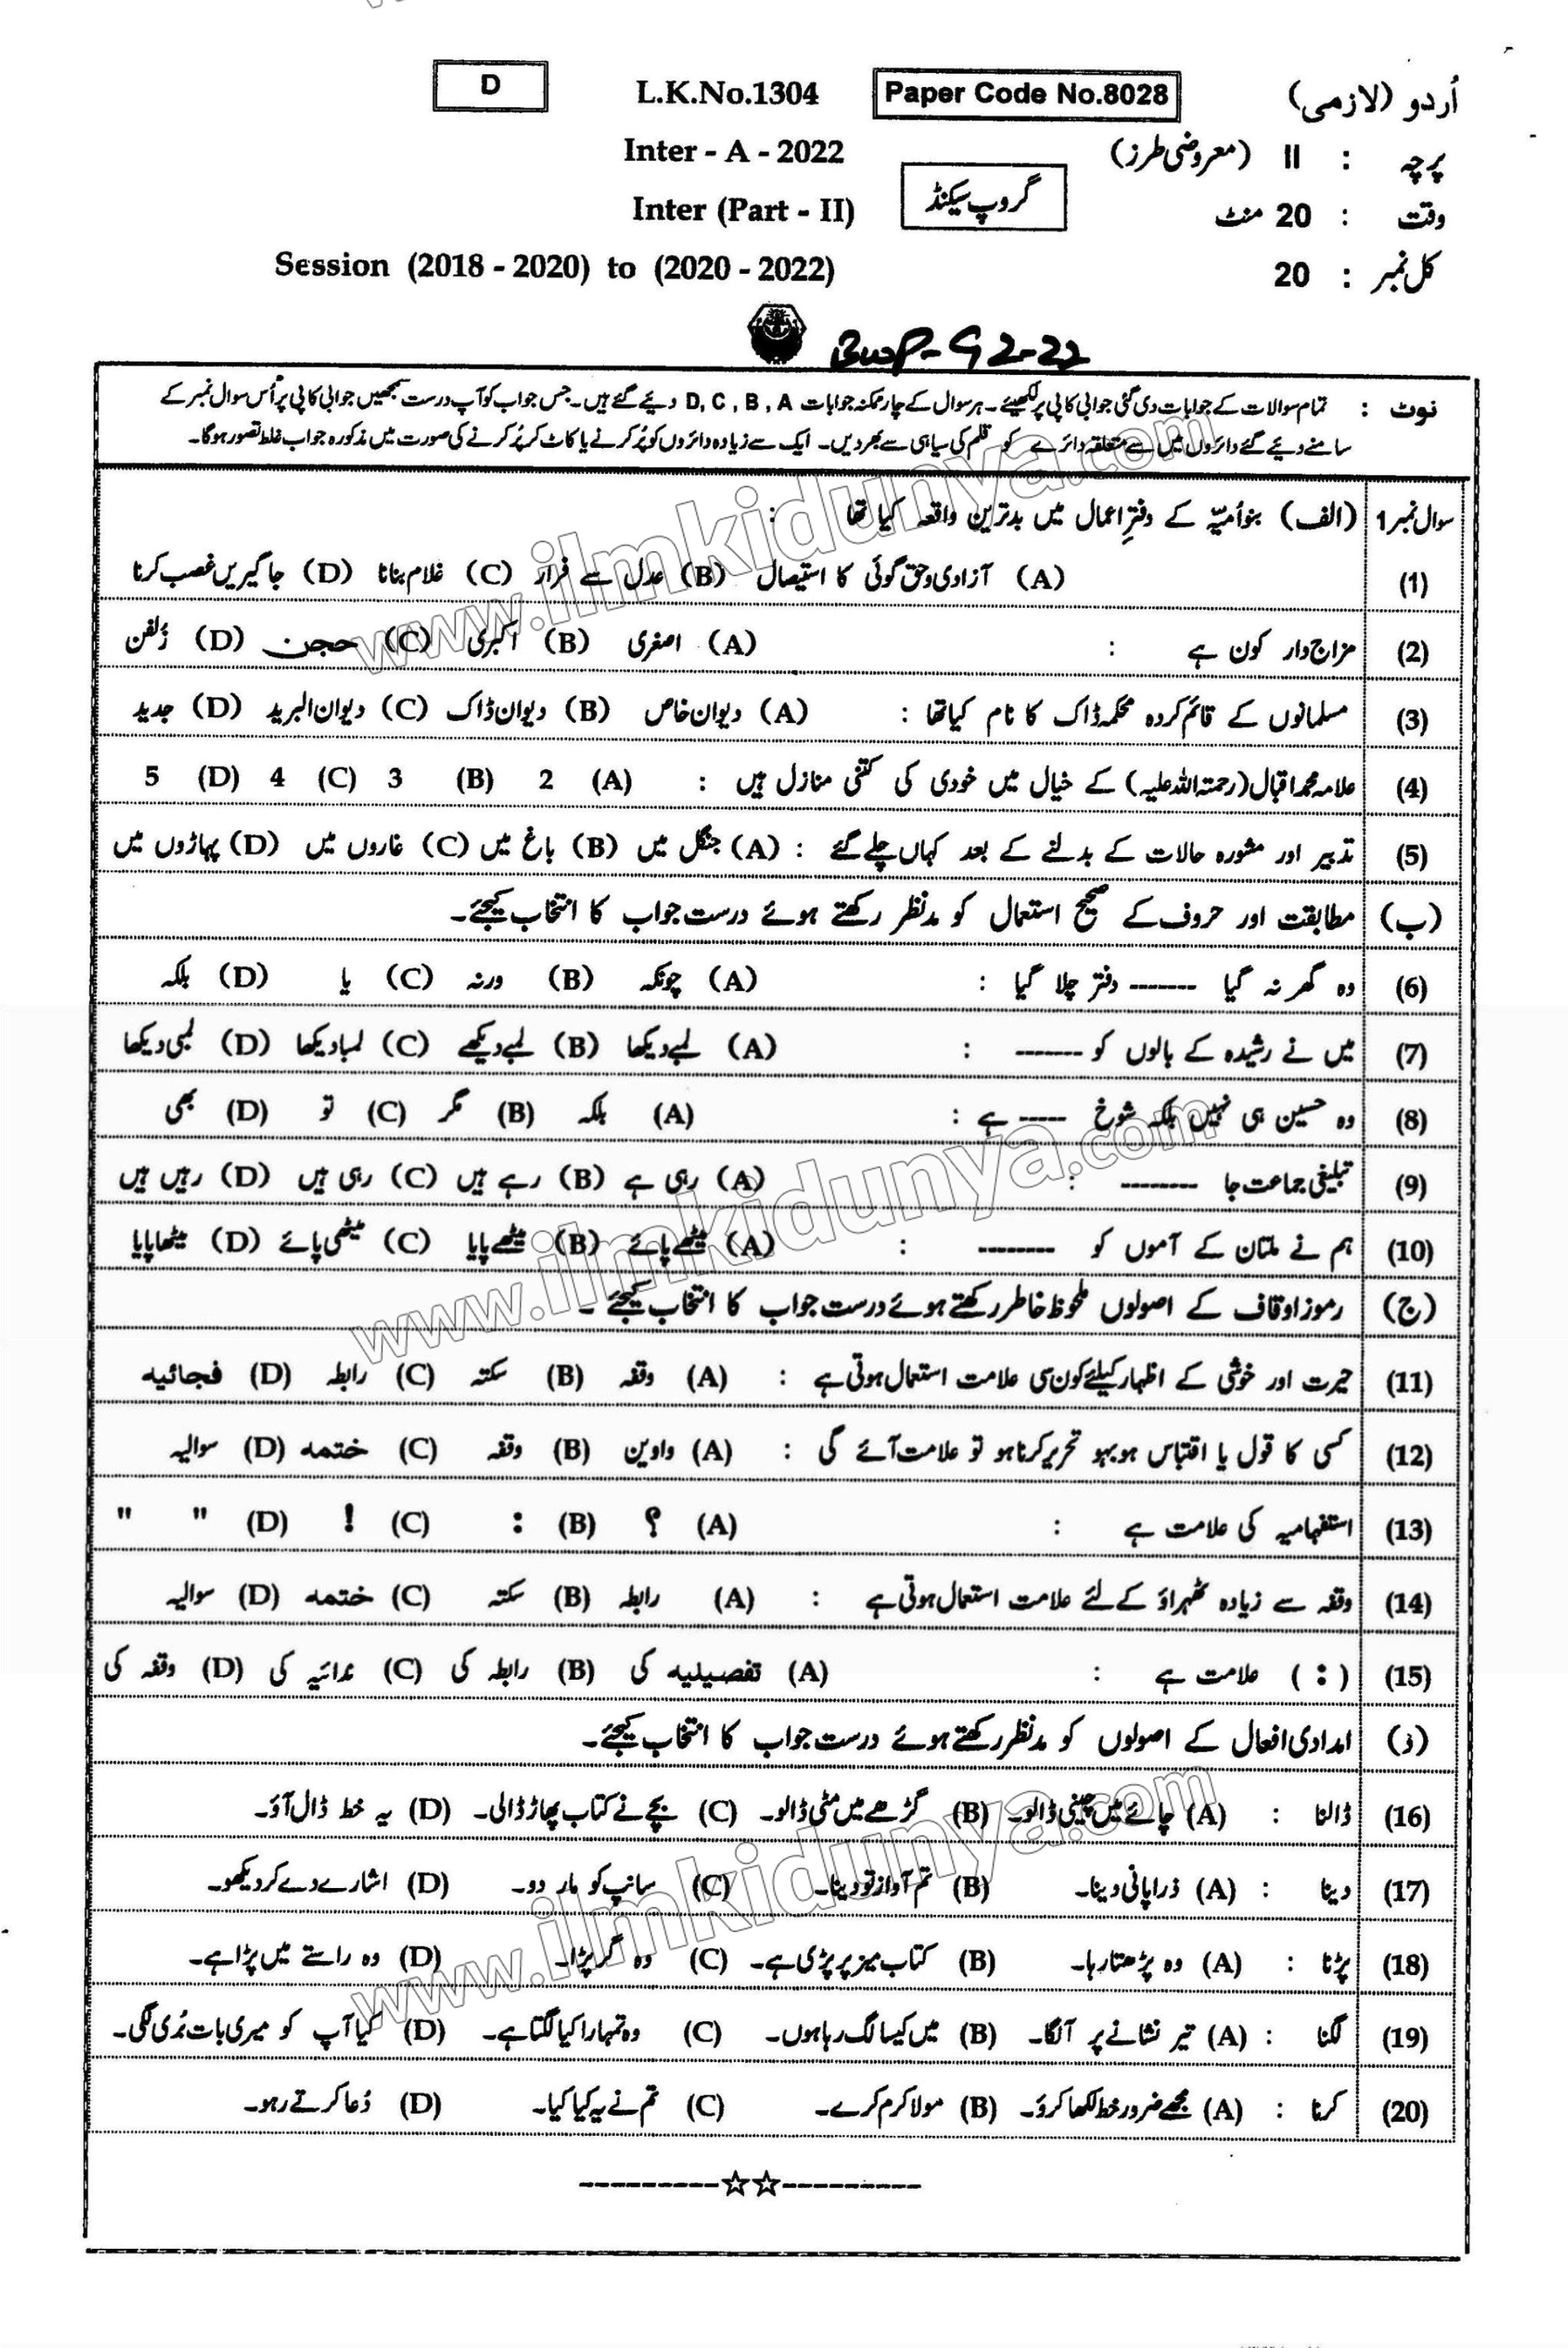 D L.K.No.1304 Paper Code No.8028 اُردو (لازمی)
Inter - A - 2022 پرچہ : II (معروضی طرز)
Inter (Part - II) گروپ سیکنڈ وقت : 20 منٹ
Session (2018 - 2020) to (2020 - 2022) کل نمبر : 20
BWP-G2-22
نوٹ : تمام سوالات کے جوابات دی گئی جوابی کاپی پر لکھیئے۔ ہر سوال کے چار ممکنہ جوابات D, C , B , A دیئے گئے ہیں۔ جس جواب کو آپ درست سمجھیں جوابی کاپی پر اُس سوال نمبر کے
سامنے دیئے گئے دائروں میں سے متعلقہ دائرے کو قلم کی سیاہی سے بھر دیں۔ ایک سے زیادہ دائروں کو پُر کرنے یا کاٹ کر پُر کرنے کی صورت میں مذکورہ جواب غلط تصور ہوگا۔
سوال نمبر 1 (الف) بنواُمیّہ کے دفترِ اعمال میں بدترین واقعہ کیا تھا :
(1) (A) آزادی و حق گوئی کا استیصال (B) عدل سے فرار (C) غلام بنانا (D) جاگیریں غصب کرنا
(2) مزاج دار کون ہے : (A) اصغری (B) اکبری (C) حجن (D) زلفن
(3) مسلمانوں کے قائم کردہ محکمہ ڈاک کا نام کیا تھا : (A) دیوان خاص (B) دیوان ڈاک (C) دیوان البرید (D) جدید
(4) علامہ محمد اقبال (رحمتہ اللہ علیہ) کے خیال میں خودی کی کتنی منازل ہیں : (A) 2 (B) 3 (C) 4 (D) 5
(5) تدبیر اور مشورہ حالات کے بدلنے کے بعد کہاں چلے گئے : (A) جنگل میں (B) باغ میں (C) غاروں میں (D) پہاڑوں میں
(ب) مطابقت اور حروف کے صحیح استعمال کو مدنظر رکھتے ہوئے درست جواب کا انتخاب کیجئے۔
(6) وہ گھر نہ گیا ------- دفتر چلا گیا : (A) چونکہ (B) ورنہ (C) یا (D) بلکہ
(7) میں نے رشیدہ کے بالوں کو ------- : (A) لمبے دیکھا (B) لمبے دیکھے (C) لمبا دیکھا (D) لمبی دیکھا
(8) وہ حسین ہی نہیں بلکہ شوخ ----- ہے : (A) بلکہ (B) مگر (C) تو (D) بھی
(9) تبلیغی جماعت جا -------- : (A) رہی ہے (B) رہے ہیں (C) رہی ہیں (D) رہیں ہیں
(10) ہم نے ملتان کے آموں کو -------- : (A) میٹھے پائے (B) میٹھے پایا (C) میٹھی پائے (D) میٹھا پایا
(ج) رموز اوقاف کے اصولوں ملحوظ خاطر رکھتے ہوئے درست جواب کا انتخاب کیجئے ۔
(11) حیرت اور خوشی کے اظہار کیلئے کون سی علامت استعمال ہوتی ہے : (A) وقفہ (B) سکتہ (C) رابطہ (D) فجائیہ
(12) کسی کا قول یا اقتباس ہو بہو تحریر کرنا ہو تو علامت آئے گی : (A) واوین (B) وقفہ (C) ختمہ (D) سوالیہ
(13) استفہامیہ کی علامت ہے : (A) ؟ (B) : (C) ! (D) " "
(14) وقفہ سے زیادہ ٹھہراؤ کے لئے علامت استعمال ہوتی ہے : (A) رابطہ (B) سکتہ (C) ختمہ (D) سوالیہ
(15) ( : ) علامت ہے : (A) تفصیلیہ کی (B) رابطہ کی (C) ندائیہ کی (D) وقفہ کی
(د) امدادی افعال کے اصولوں کو مدنظر رکھتے ہوئے درست جواب کا انتخاب کیجئے۔
(16) ڈالنا : (A) چائے میں چینی ڈالو۔ (B) گڑھے میں مٹی ڈالو۔ (C) بچے نے کتاب پھاڑ ڈالی۔ (D) یہ خط ڈال آؤ۔
(17) دینا : (A) ذرا پانی دینا۔ (B) تم آواز تو دینا۔ (C) سانپ کو مار دو۔ (D) اشارے دے کر دیکھو۔
(18) پڑنا : (A) وہ پڑھتا رہا۔ (B) کتاب میز پر پڑی ہے۔ (C) وہ گر پڑا۔ (D) وہ راستے میں پڑا ہے۔
(19) لگنا : (A) تیر نشانے پر آ لگا۔ (B) میں کیسا لگ رہا ہوں۔ (C) وہ تمہارا کیا لگتا ہے۔ (D) کیا آپ کو میری بات بُری لگی۔
(20) کرنا : (A) مجھے ضرور خط لکھا کرو۔ (B) مولا کرم کرے۔ (C) تم نے یہ کیا کیا۔ (D) دُعا کرتے رہو۔
----------☆☆----------
www.ilmkidunya.com
www.ilmkidunya.com
www.ilmkidunya.com